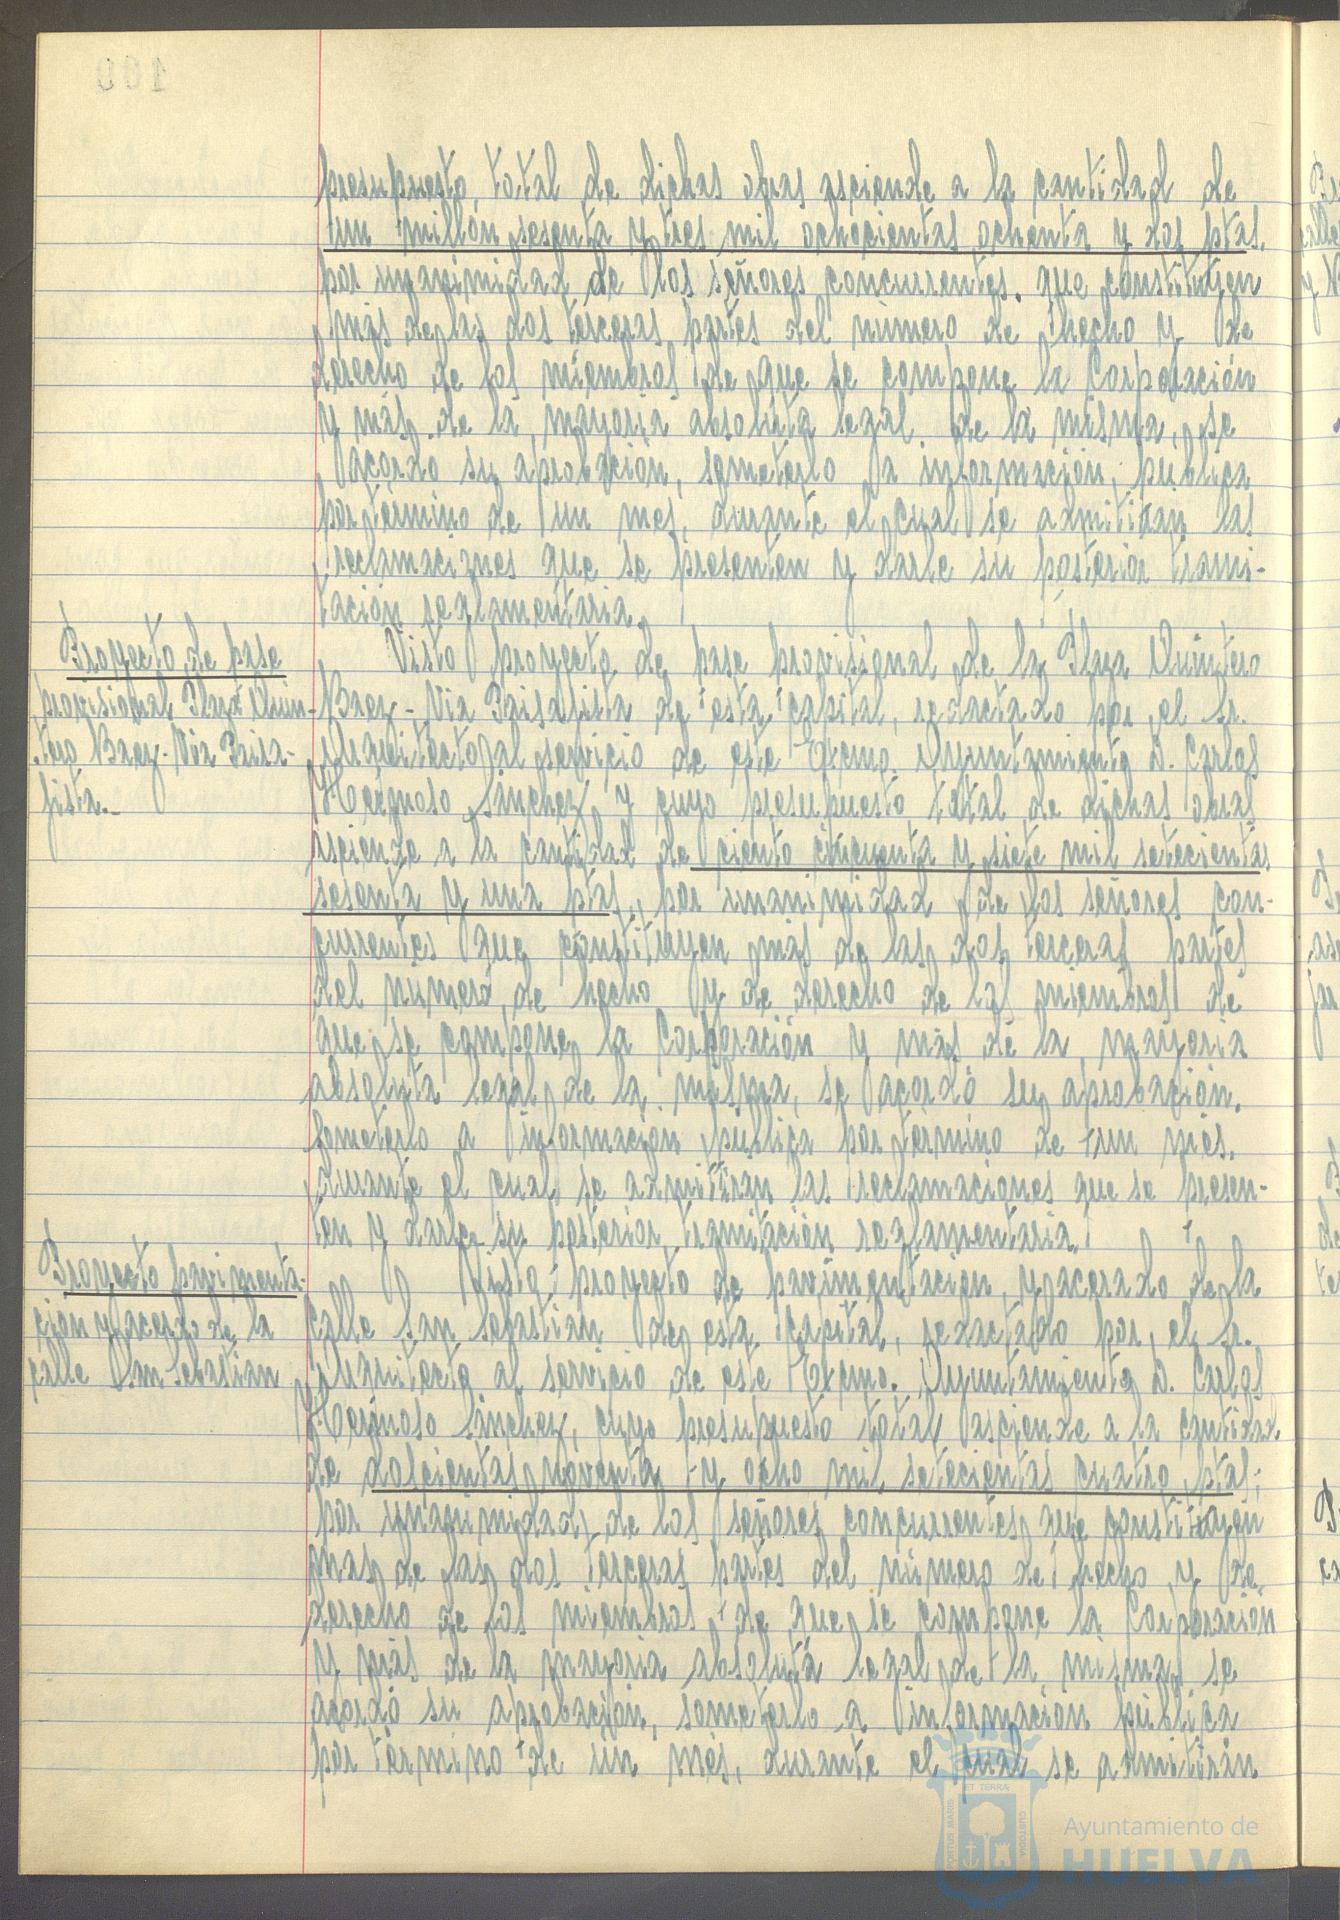 presupuesto total de dichas obras asciende a la cantidad de
un millón sesenta y tres mil ochocientas ochenta y dos ptas.
por unanimidad de los señores concurrentes. que constituyen
más de las dos terceras partes del número de hecho y de
derecho de los miembros de que se compone la Corporación
y más de la mayoría absoluta legal de la misma, se
acordó su aprobación, someterlo a información pública
por término de un mes, durante el cual se admitirán las
reclamaciones que se presenten y darle su posterior trami-
tación reglamentaria.
Proyecto de pase
provisional Plaza Quin-
tero Baez - Via Paisa-
jista.-
Visto proyecto de pase provisional de la Plaza Quintero
Baez - Via Paisajista de esta capital, redactado por el Sr.
Arquitecto al servicio de este Excmo. Ayuntamiento D. Carlos
Hermoso Sánchez y cuyo presupuesto total de dichas obras
asciende a la cantidad de ciento cincuenta y siete mil setecientas
sesenta y una ptas, por unanimidad de los señores con-
currentes que constituyen más de las dos terceras partes
del número de hecho y de derecho de los miembros de
que se compone la Corporación y más de la mayoría
absoluta legal de la misma, se acordó su aprobación.
someterlo a información pública por término de un mes.
durante el cual se admitirán las reclamaciones que se presen-
ten y darle su posterior tramitación reglamentaria.
Proyecto pavimenta-
ción y acerado de la
calle San Sebastian
Visto proyecto de pavimentación y acerado de la
calle San Sebastian de esta capital, redactado por el Sr.
Arquitecto al servicio de este Excmo. Ayuntamiento D. Carlos
Hermoso Sánchez, cuyo presupuesto total asciende a la cantidad
de doscientas noventa y ocho mil setecientas cuatro ptas;
por unanimidad de los señores concurrentes que constituyen
mas de las dos terceras partes del número de hecho y de
derecho de los miembros de que se compone la Corporación
y más de la mayoría absoluta legal de la misma se
acordó su aprobación, someterlo a información pública
por término de un mes, durante el cual se admitirán
PORTUS MARIS
ET TERRÆ
CUSTODIA
Ayuntamiento de
HUELVA